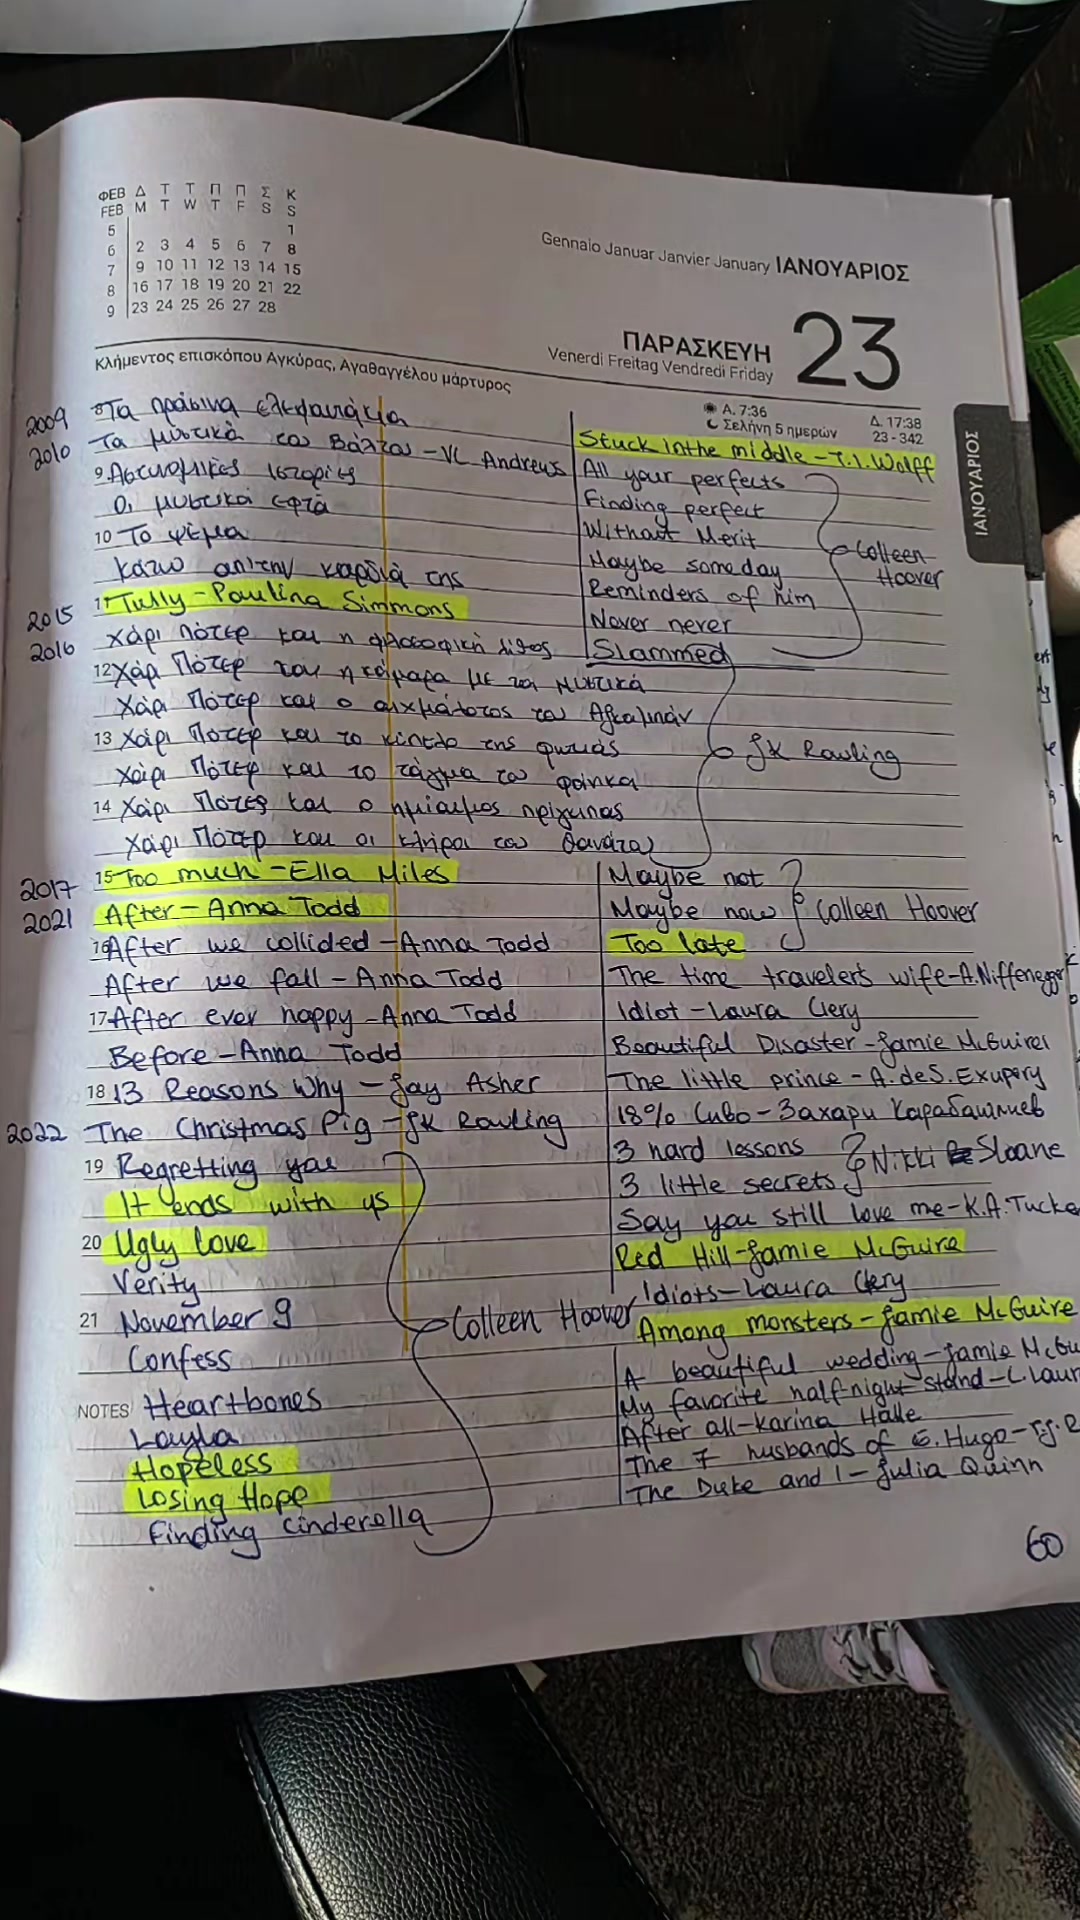 ΦΕΒ Δ Τ Τ Π Π Σ Κ
FEB M T W T F S S
5 1
6 2 3 4 5 6 7 8
7 9 10 11 12 13 14 15
8 16 17 18 19 20 21 22
9 23 24 25 26 27 28
Gennaio Januar Janvier January ΙΑΝΟΥΑΡΙΟΣ
ΠΑΡΑΣΚΕΥΗ 23
Venerdi Freitag Vendredi Friday
Κλήμεντος επισκόπου Αγκύρας, Αγαθαγγέλου μάρτυρος
Α. 7:36 Δ. 17:38
Σελήνη 5 ημερών 23 - 342
ΙΑΝΟΥΑΡΙΟΣ
2009 8 Τα πράσινα ελεφαντάκια
2010 Τα μυστικά του Βάλτου - VC Andrews
9 Αστυνομικές Ιστορίες
Οι μυστικοί εφτά
10 Το ψέμα
κάτω απ'την καρδιά της
2015 11 Tully - Paulina Simmons
2016 Χάρι Πότερ και η φιλοσοφική λίθος
12 Χάρι Πότερ και η κάμαρα με τα μυστικά
Χάρι Πότερ και ο αιχμάλωτος του Αζκαμπάν
13 Χάρι Πότερ και το κύπελο της φωτιάς
Χάρι Πότερ και το τάγμα του φοίνικα
14 Χάρι Πότερ και ο ημίαιμος πρίγκιπας
Χάρι Πότερ και οι κλήροι του θανάτου
JK Rowling
2017 15 Too much - Ella Miles
2021 After - Anna Todd
16 After we collided - Anna Todd
After we fall - Anna Todd
17 After ever happy - Anna Todd
Before - Anna Todd
18 13 Reasons Why - Jay Asher
2022 The Christmas Pig - JK Rowling
19 Regretting you
It ends with us
20 Ugly love
Verity
21 November 9
Confess
NOTES Heartbones
Layla
Hopeless
Losing Hope
Finding cinderella
Colleen Hoover
Stuck in the middle - T.I. Wolff
All your perfects
Finding perfect
Without Merit
Maybe someday
Reminders of him
Never never
Slammed
Colleen
Hoover
Maybe not
Maybe now
Too late
Colleen Hoover
The time traveler's wife - A. Niffenegger
Idiot - Laura Clery
Beautiful Disaster - Jamie McGuire
The little prince - A. de S. Exupery
18% Сиво - Захари Карабашлиев
3 hard lessons
3 little secrets
Nikki Sloane
Say you still love me - K.A. Tucke
Red Hill - Jamie McGuire
Idiots - Laura Clery
Among monsters - Jamie McGuire
A beautiful wedding - Jamie McGu
My favorite half-night stand - C. Laur
After all - Karina Halle
The 7 husbands of E. Hugo - T.J. R
The Duke and I - Julia Quinn
60